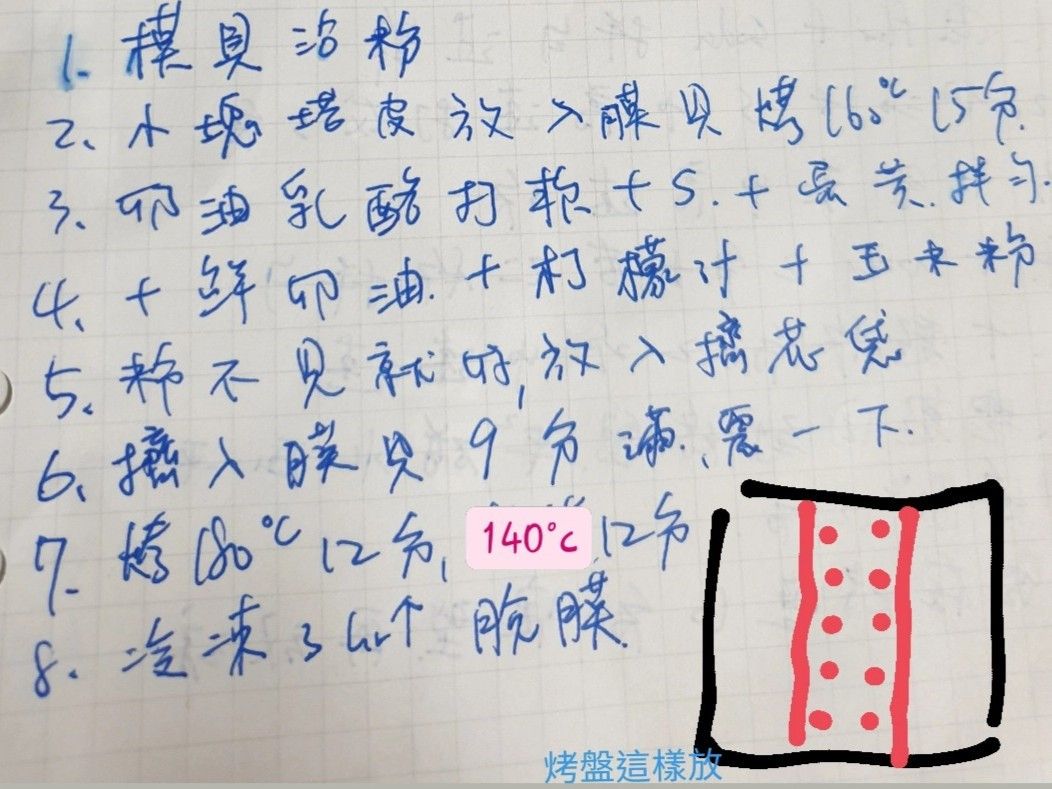 1. 模具沾粉
2. 小塊塔皮放入膜具烤160℃ 15分.
3. 卯油乳酪打軟+S.+蛋黄.拌匀.
4. +鲜卯油.+柠檬汁+玉米粉
5. 粉不見就好,放入擠花袋
6. 擠入膜具9分滿.,震一下.
7. 烤180℃ 12分, 140℃ 12分
8. 冷凍3 hr↑ 脱膜.
烤盤這樣放